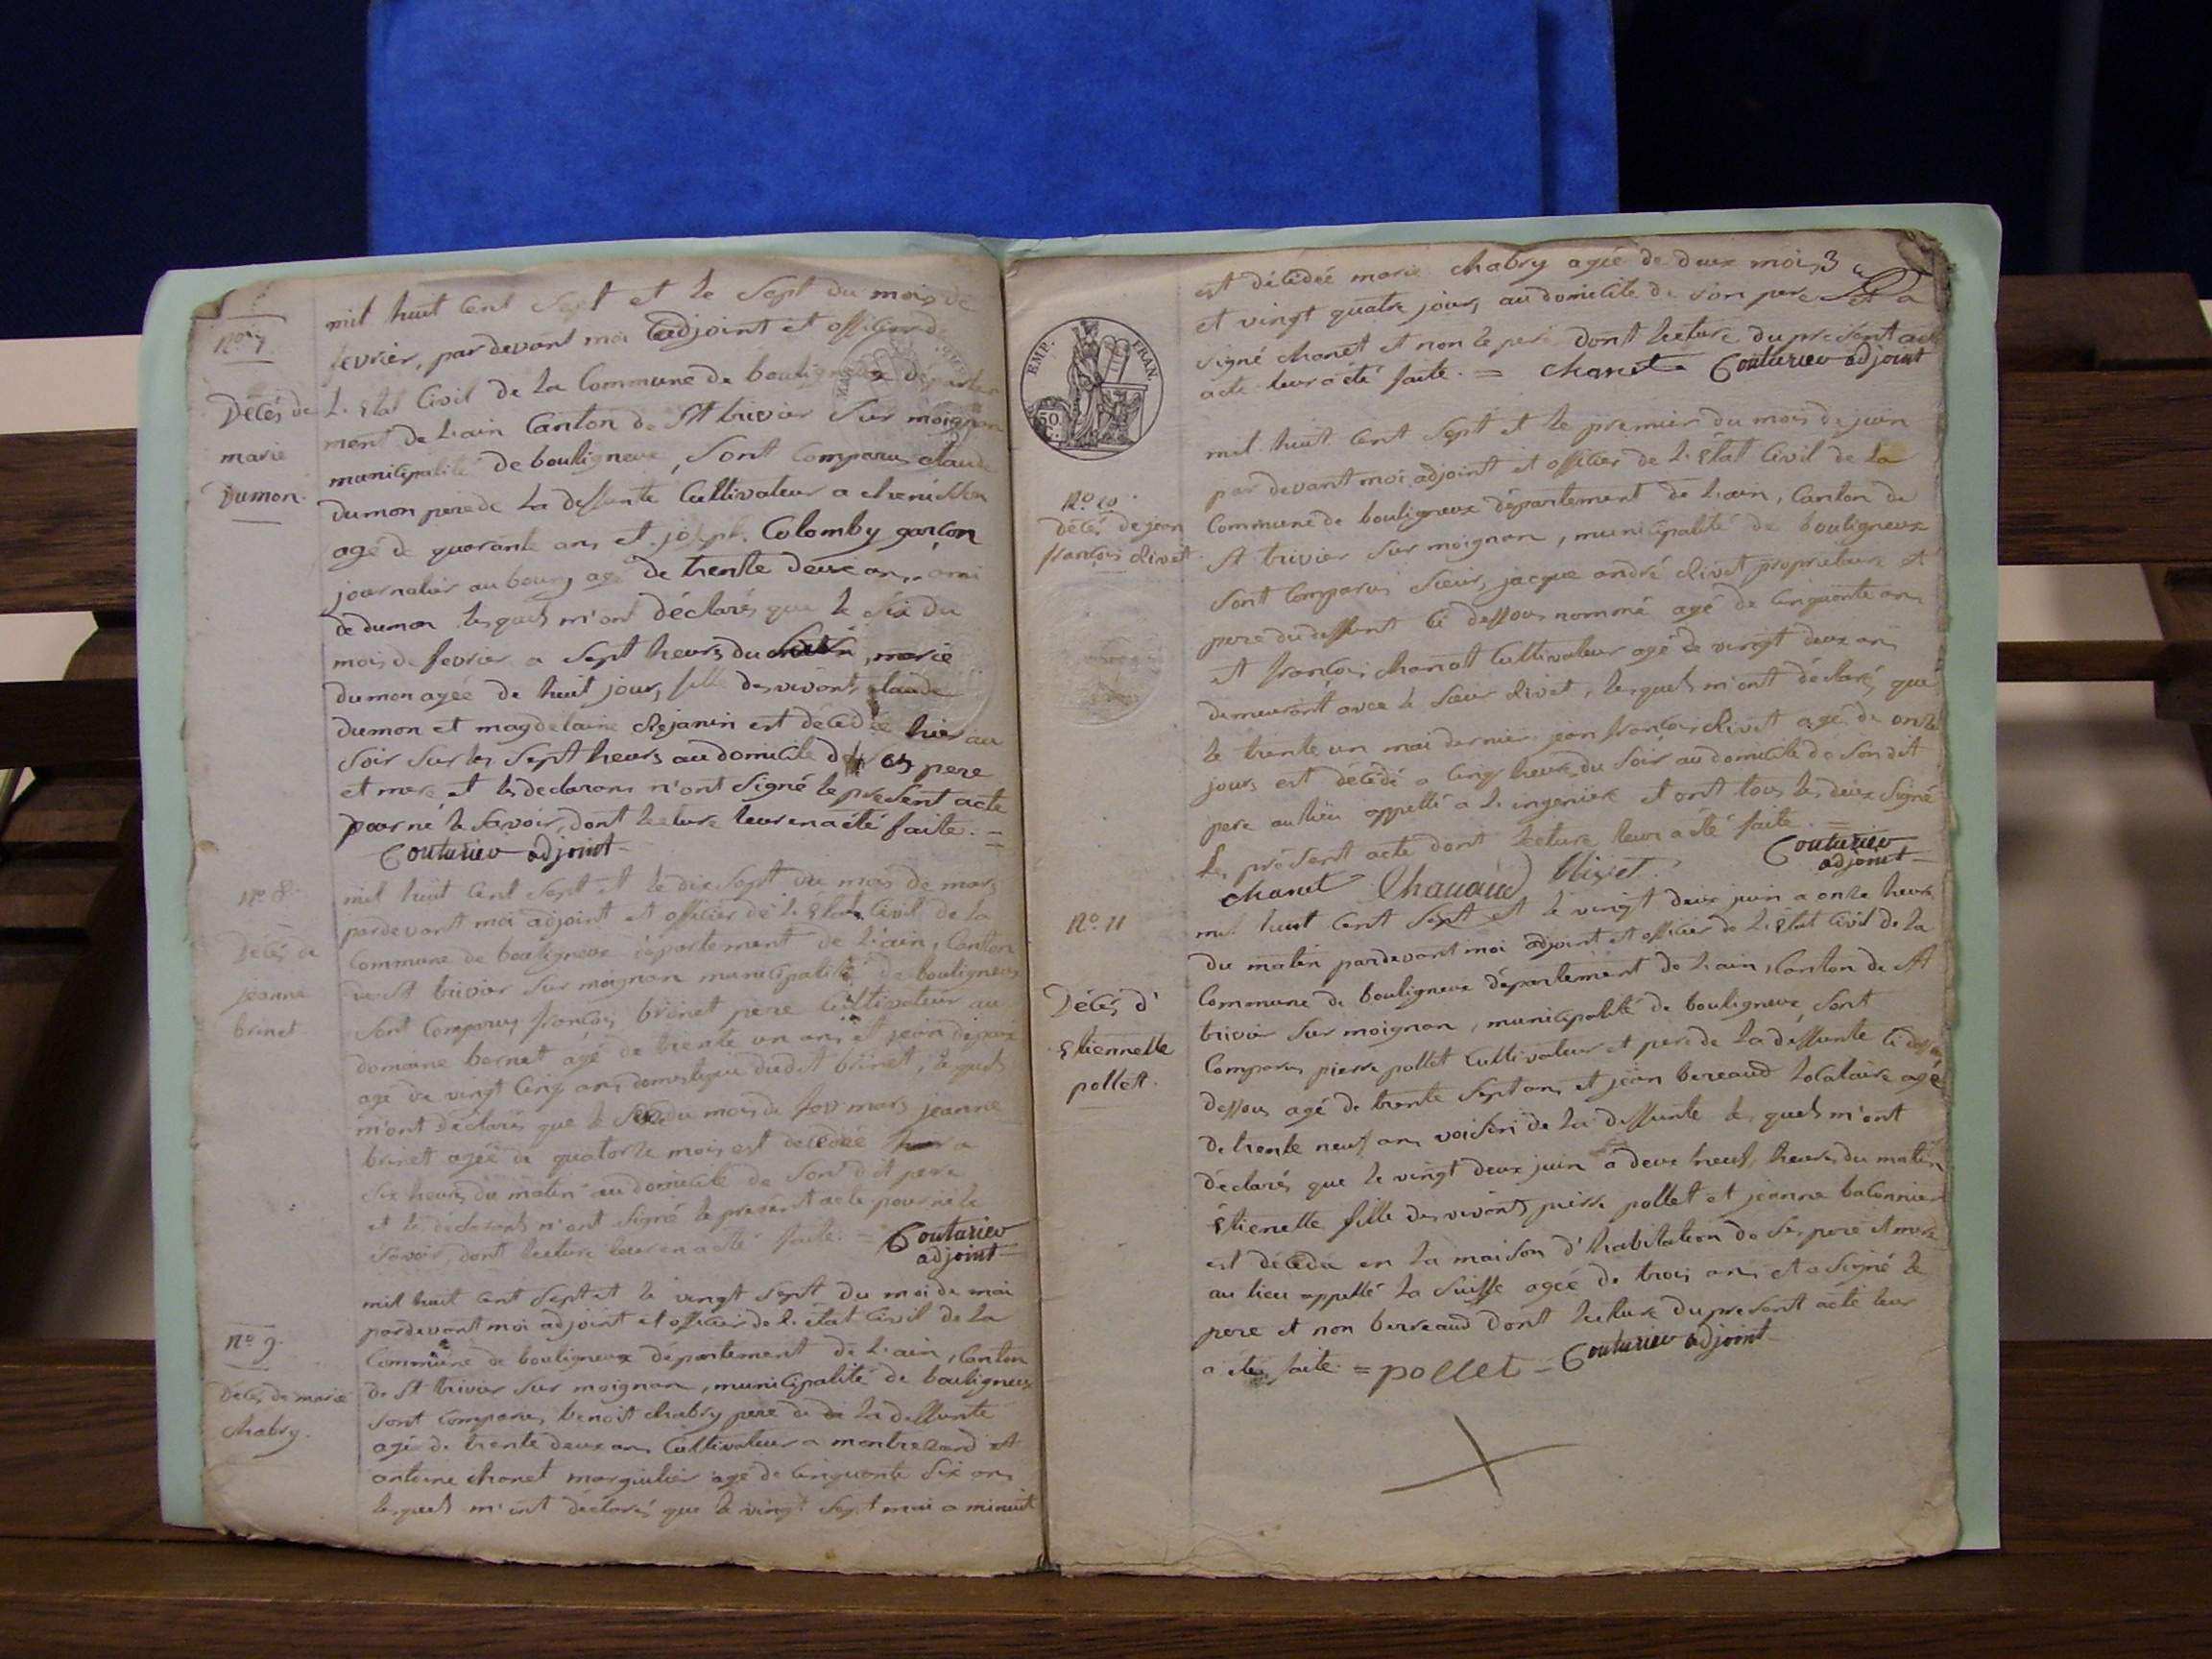 No 7
Décés de
marie
Dumon.
mil huit Cent Sept et le Sept du mois de
fevrier, par devant moi adjoint et officier de
L'état Civil de la Commune de bouligneux départe
ment de L'ain Canton de St trivier Sur moignan
municipalité de bouligneux, Sont Comparus claude
dumon pere de la deffunte Cultivateur a
agé de quarante ans et joseph Colomby garçon
journalier au bourg agé de trente deux ans, ami
de dumon lesquels m'ont déclarés que le Six du
mois de fevrier a Sept heures du , marie
dumon agée de huit jours, fille des vivants claude
dumon et magdelaine Rejanin est décédée hier au
Soir Sur les Sept heures au domicile de ses pere
et mere, et les declarans n'ont Signé le present acte
pour ne le Savoir, dont lecture leur en a été faite. =
Couturier adjoint
No 8.
Décés de
jeanne
brinet
mil huit Cent Sept et le dix Sept du mois de mars
pardevant moi adjoint et officier de L'état Civil de la
Commune de bouligneux département de L'ain, Canton
de St trivier Sur moignan municipalité de bouligneux
Sont Comparus françois brinet pere Cultivateur au
domaine bernet agé de trente un ans et jean
agé de vingt Cinq ans domestique dudit brinet, lesquels
m'ont déclarés que le du mois de mars jeanne
brinet agée de quatorze mois est decedée a
Six heures du matin au domicile de Son dit pere
et les déclarants n'ont Signé le present acte pour ne le
Savoir, dont lecture leur en a été faite. = Couturier
adjoint
No 9.
Décés de marie
chabry.
mil huit Cent Sept et le vingt Sept du moi de mai
pardevant moi adjoint et officier de L'état Civil de la
Commune de bouligneux département de L'ain, Canton
de St trivier Sur moignan, municipalité de bouligneux
Sont Comparus, benoit chabry pere de de la deffunte
agé de trente deux ans Cultivateur a montrezard et
antoine chanet marguilier agé de Cinquante Six ans
lesquels m'ont déclarés que le vingt Sept mai a minuit
3
est décédée marie chabry agée de deux mois
et vingt quatre jours, au domicile de Son pere et a
Signé chanet et non le pere dont lecture du present acte
acte leur a été faite. = chanet Couturier adjoint
EMP. FRAN.
50
No 10
décés de jean
françois Rivet
mil huit Cent Sept et le premier du mois de juin
par devant moi, adjoint et officier de L'état Civil de La
Commune de bouligneux département de L'ain, Canton de
St trivier Sur moignan, municipalité de bouligneux
Sont Comparus Sieurs, jacque andré Rivet proprietaire et
pere du deffunt Ci dessous nommé agé de Cinquante ans
et françois chanet Cultivateur agé de vingt deux ans
demeurant avec le Sieur Rivet, lesquels m'ont déclarés que
le trente un mai dernier jean françois Rivet agé de onze
jours est décédé a Cinq heures du Soir au domicile de Son dit
pere au lieu appellé a L'ingeniere et ont tous les deux Signé
Le présent acte dont lecture leur a été faite. =
chanet Rivet. Couturier
adjoint
No 11
Décés d'
Etiennette
pollet.
mil huit Cent Sept et le vingt deux juin a onze heures
du matin pardevant moi adjoint et officier de L'état Civil de La
Commune de bouligneux département de L'ain, Canton de St
trivier Sur moignan, municipalité de bouligneux, Sont
Comparus pierre pollet Cultivateur et pere de La deffunte Ci
dessous agé de trente Sept ans et jean berreaud locataire agé
de trente neuf ans voisin de La deffunte lesquels m'ont
déclarés que le vingt deux juin a deux heures du matin
Etienette fille des vivants pierre pollet et jeanne baconnier
est décédée en La maison d'habitation de Ses pere et mere
au lieu appellé La Suisse agée de trois ans et a Signé le
pere et non berreaud dont lecture du present acte leur
a été faite = pollet = Couturier adjoint